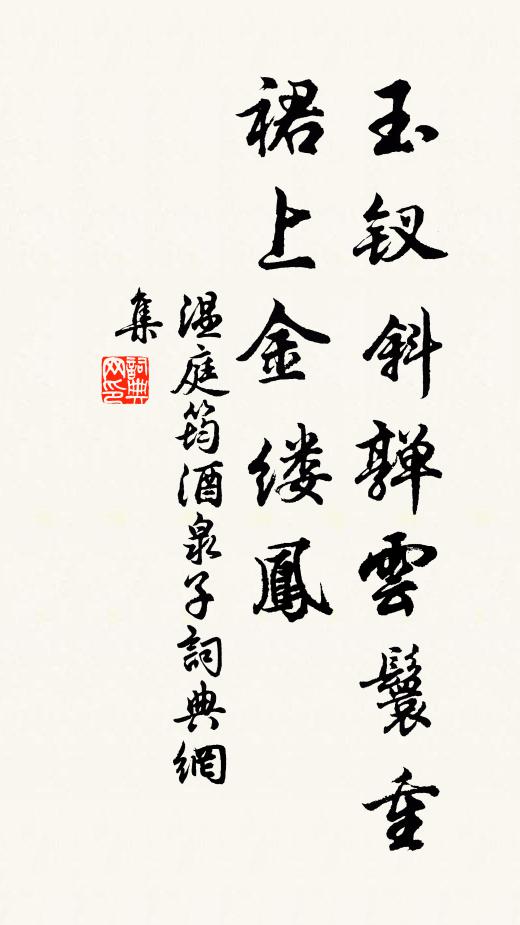 玉釵斜嚲雲鬟重
裙上金縷鳳
溫庭筠酒泉子詞典網
集
詞典
网印